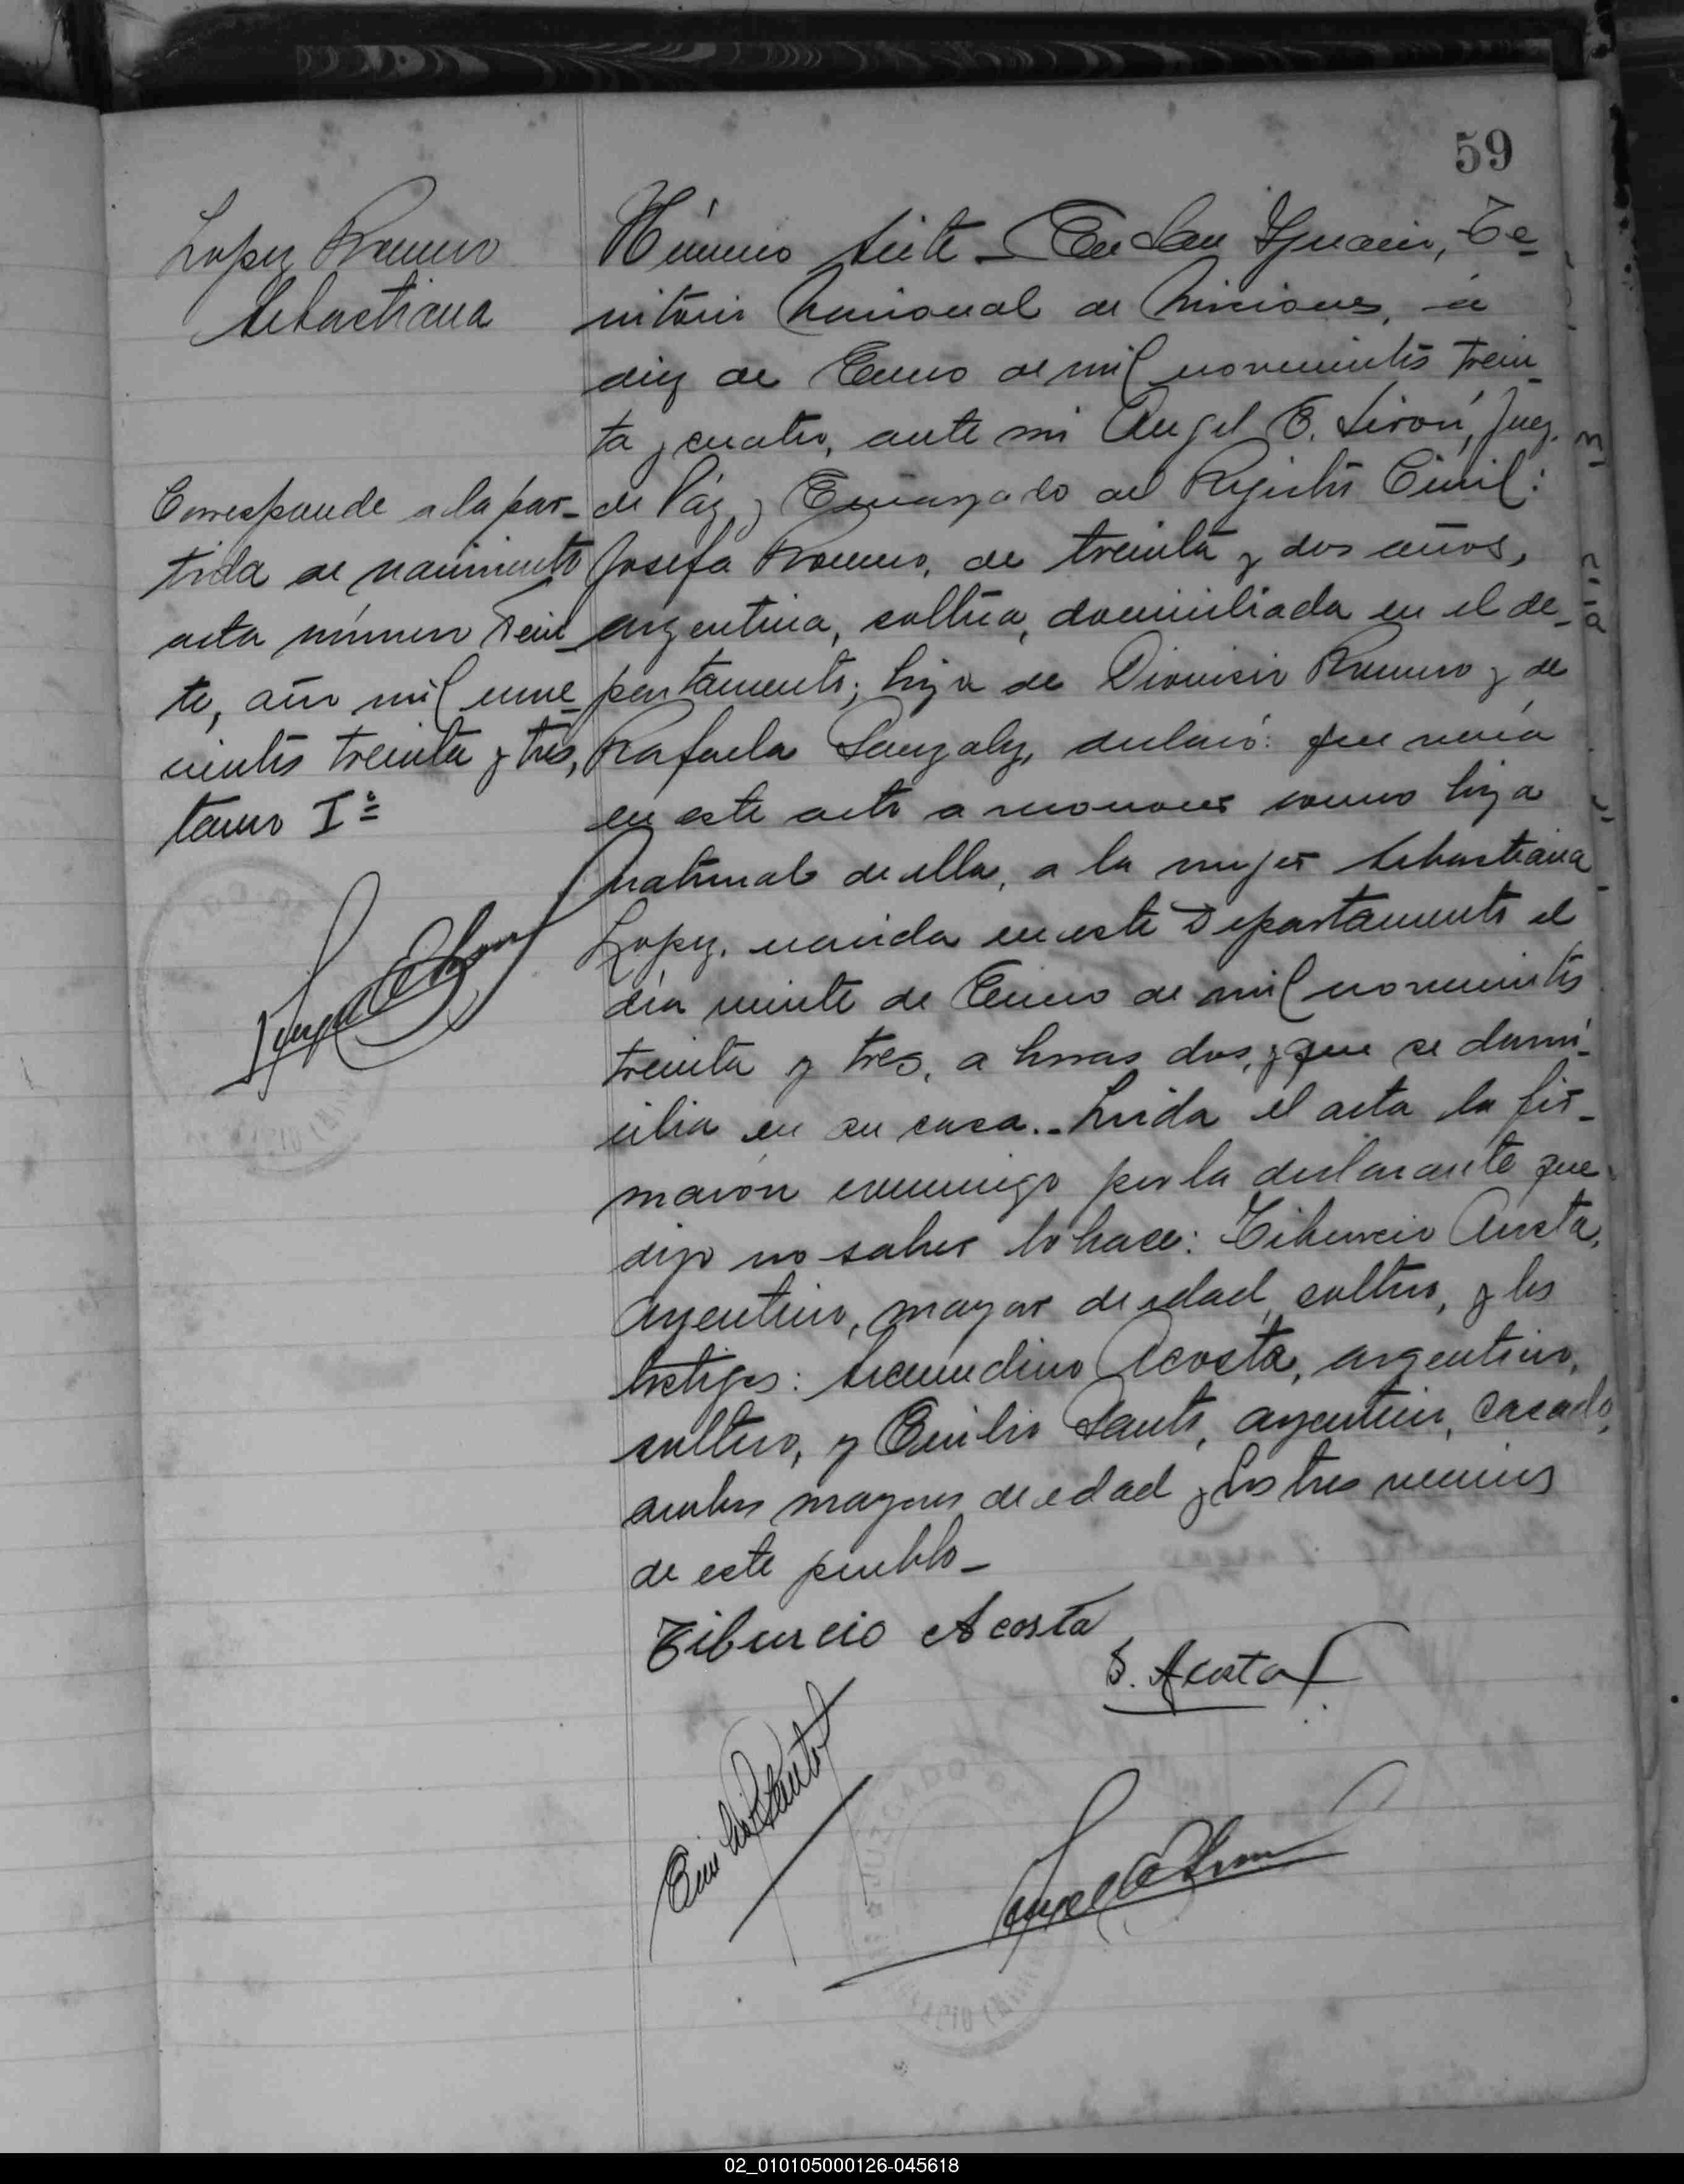 59
Lopez Romero
Sebastiana
Corresponde a la par-
tida de nacimiento
acta número Vein-
te, año mil nove-
cientos treinta y tres,
tomo Iº
Número siete - En San Ignacio, Te-
rritorio Nacional de Misiones, a
diez de Enero de mil novecientos trein-
ta y cuatro, ante mi Angel E. Juez
de Páz y Encargado del Registro Civil:
Josefa Romero, de treinta y dos años,
argentina, soltera, domiciliada en el de-
partamento; hija de Dionisio Romero y de
Rafaela Gonzalez, declaró: que venía
en este acto a reconocer como hija
natural de ella, a la mujer Sebastiana
Lopez, nacida en este Departamento el
día veinte de Enero de mil novecientos
treinta y tres, a horas dos, y que se domi-
cilia en su casa.- Leida el acta la fir-
maron conmigo por la declarante que
dijo no saber lo hace: Tiburcio Acosta,
argentino, mayor de edad, soltero, y los
testigos: Secundino Acosta, argentino,
soltero, y Emilio Dauts, argentino, casado,
ambos mayores de edad y los tres vecinos
de este pueblo-
Tiburcio Acosta
S. Acosta
JUZGADO DE
02_010105000126-045618